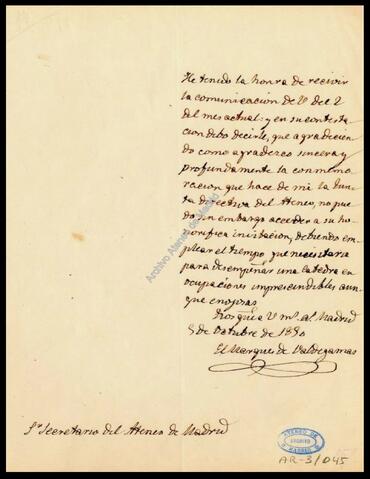 He tenido la honra de recivir
la comunicacion de V. del 2
del mes actual: y en su contesta-
cion debo decirle, que agradecien-
do como agradezco sincera y
profundamente la conmemo-
racion que hace de mi la Junta
directiva del Ateneo, no pue-
do sin embargo acceder a su ho-
norifica invitacion, debiendo em-
plear el tiempo que necesitaria
para desempeñar una catedra en
ocupaciones imprescindibles aun-
que enojosas
Dios gue a V. ms. as. Madrid
5 de Octubre de 1850
El Marques de Valdegamas
Sr. Secretario del Ateneo de Madrid
Archivo Ateneo de Madrid
ATENEO DE
ARCHIVO
MADRID
AR-3/045